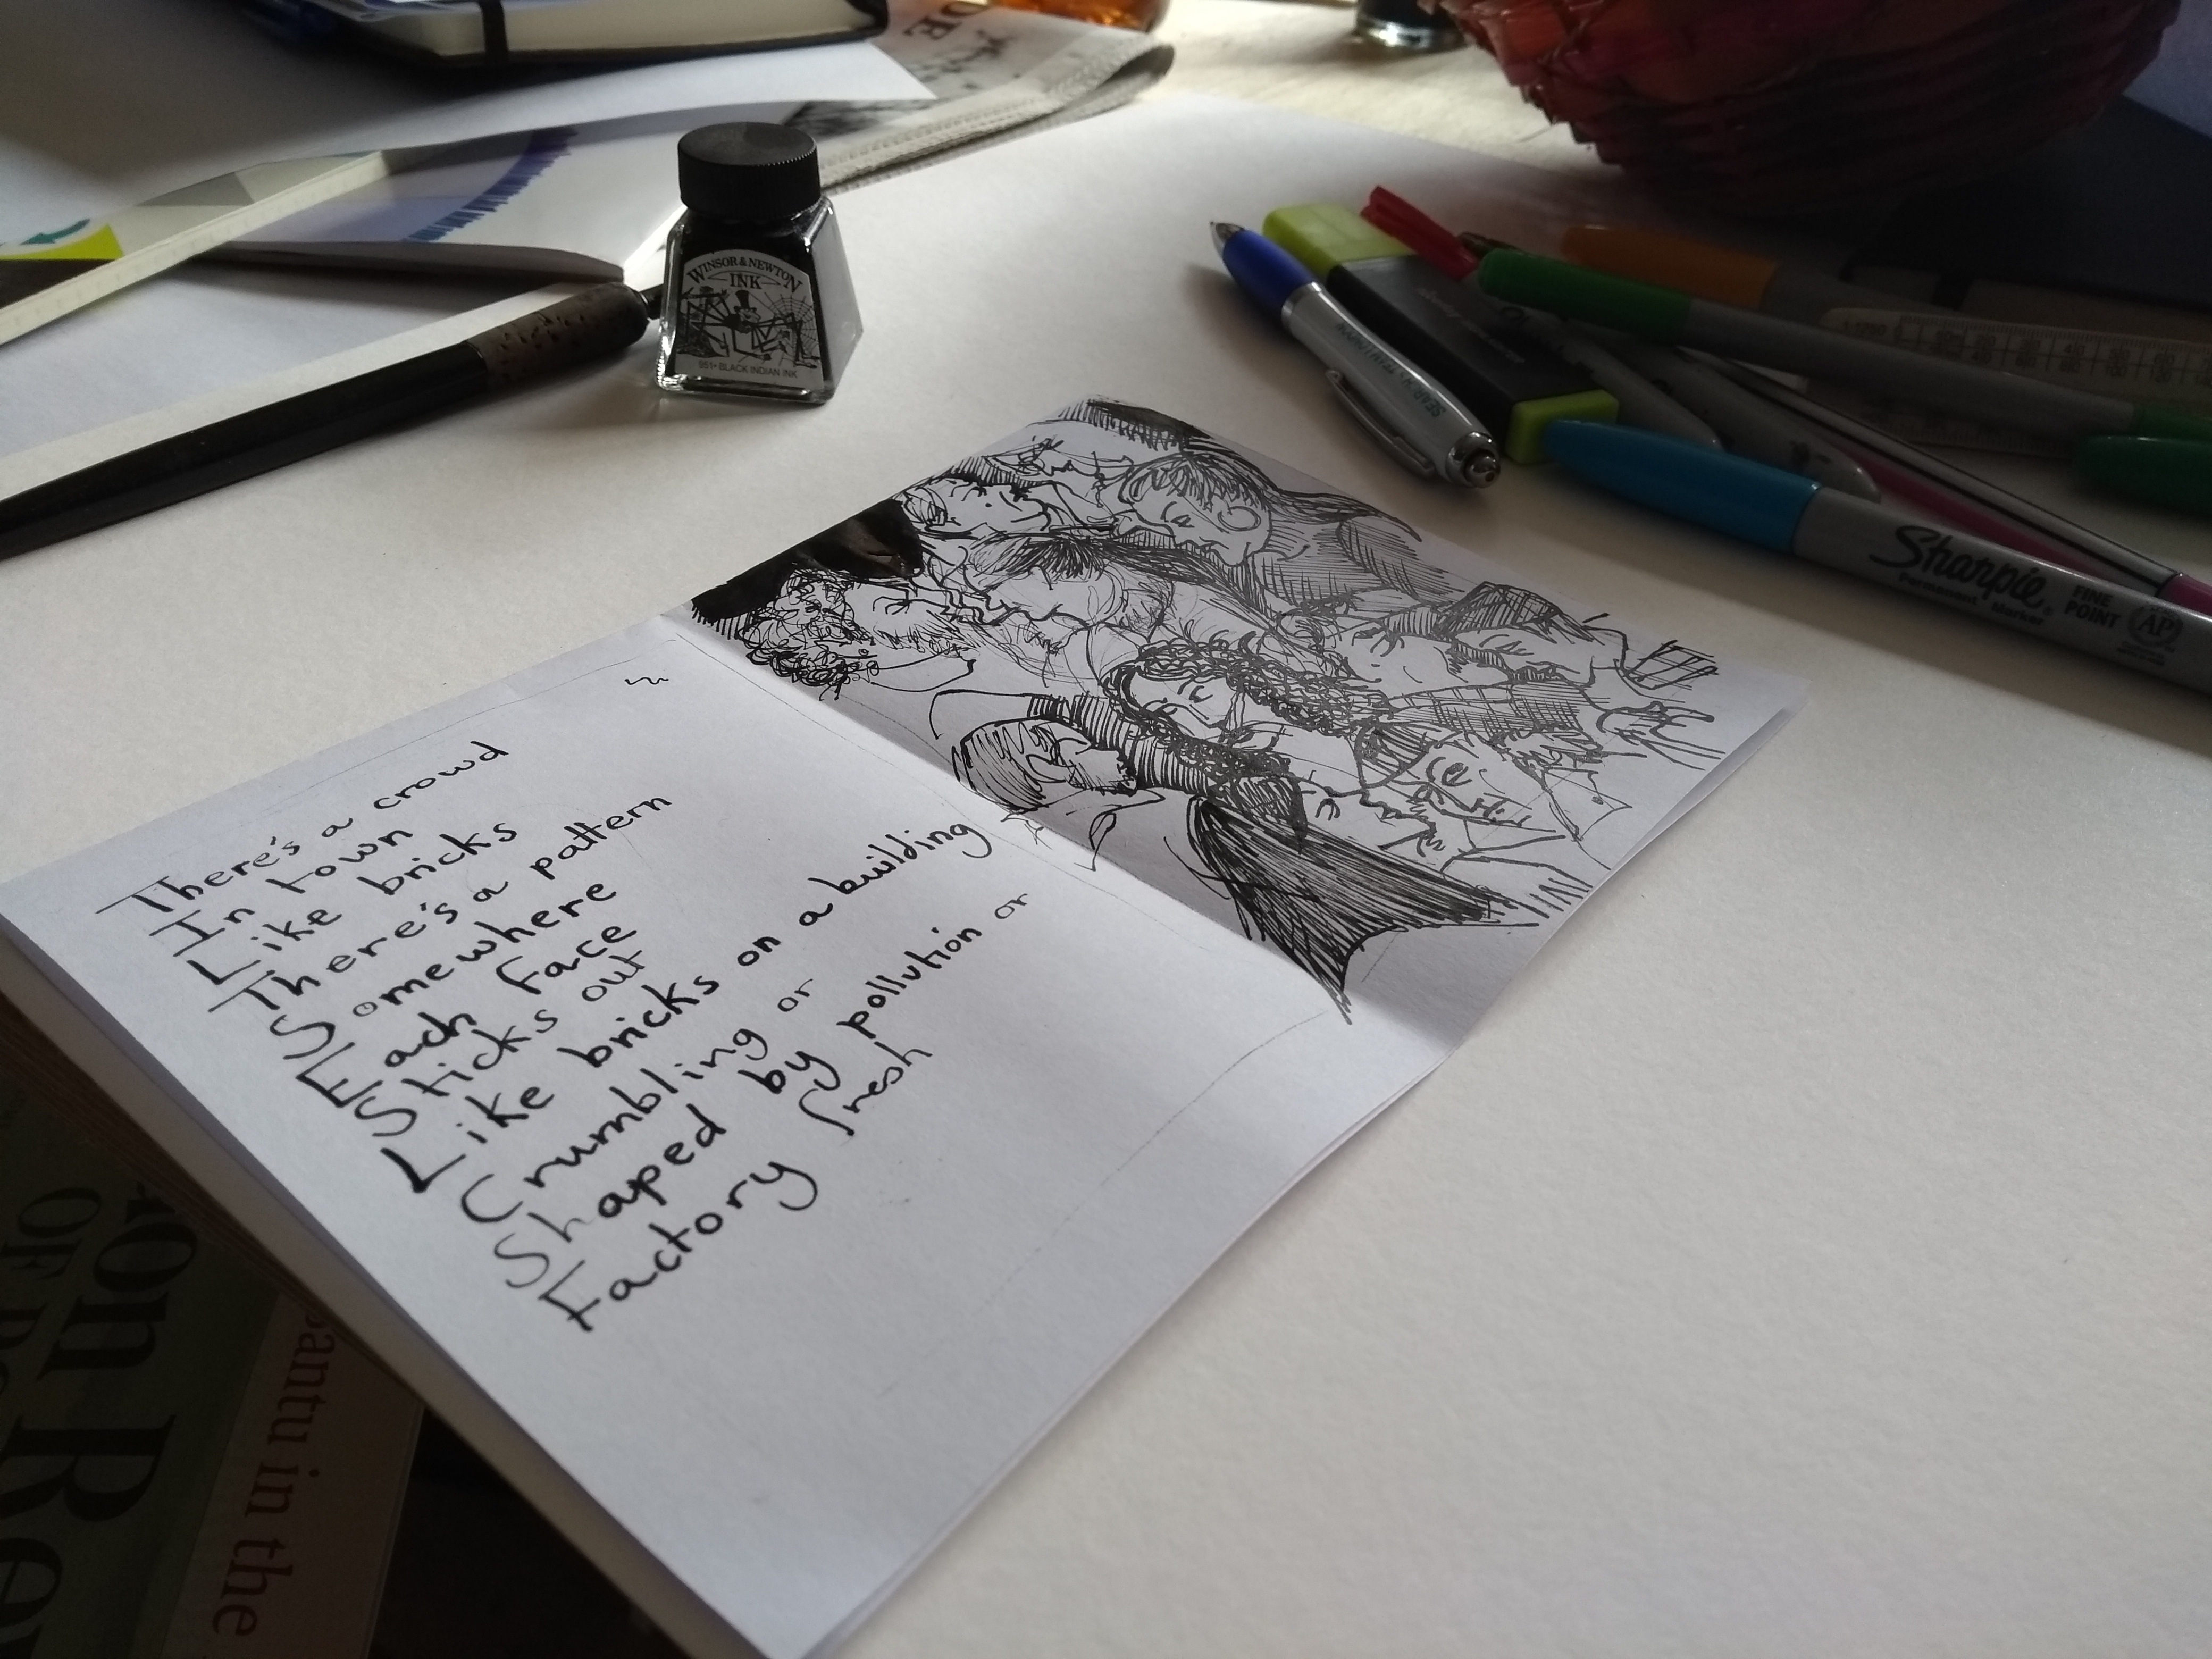 There's a crowd
In town
Like bricks
There's a pattern
Somewhere
Each face
Sticks out
Like bricks on a building
Crumbling or
Shaped by pollution or
Factory fresh
WINSOR & NEWTON
INK
951 • BLACK INDIAN INK
Sharpie
Permanent Marker
FINE
POINT
AP
DE
ron Re
OF
antu in the